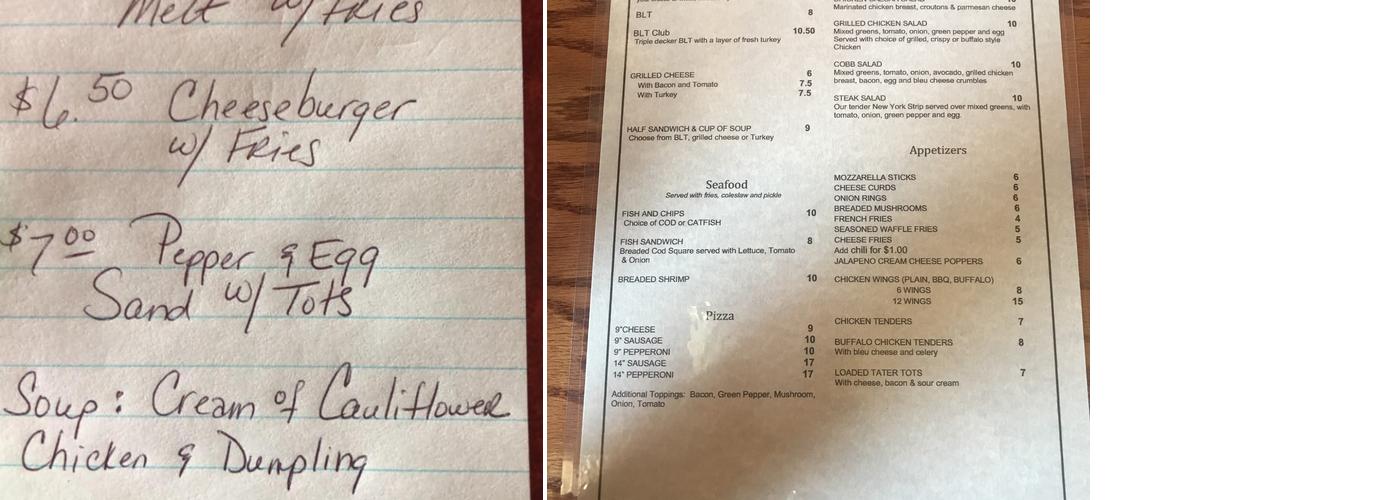 Melt w/ Fries
$6.50 Cheeseburger
w/ Fries
$7.00 Pepper & Egg
Sand w/ Tots
Soup: Cream of Cauliflower
Chicken & Dumpling
BLT 8
BLT Club 10.50
Triple decker BLT with a layer of fresh turkey
GRILLED CHEESE 6
With Bacon and Tomato 7.5
With Turkey 7.5
HALF SANDWICH & CUP OF SOUP 9
Choose from BLT, grilled cheese or Turkey
Seafood
Served with fries, coleslaw and pickle
FISH AND CHIPS 10
Choice of COD or CATFISH
FISH SANDWICH 8
Breaded Cod Square served with Lettuce, Tomato
& Onion
BREADED SHRIMP 10
Pizza
9"CHEESE 9
9" SAUSAGE 10
9" PEPPERONI 10
14" SAUSAGE 17
14" PEPPERONI 17
Additional Toppings: Bacon, Green Pepper, Mushroom,
Onion, Tomato
Marinated chicken breast, croutons & parmesan cheese
GRILLED CHICKEN SALAD 10
Mixed greens, tomato, onion, green pepper and egg
Served with choice of grilled, crispy or buffalo style
Chicken
COBB SALAD 10
Mixed greens, tomato, onion, avocado, grilled chicken
breast, bacon, egg and bleu cheese crumbles
STEAK SALAD 10
Our tender New York Strip served over mixed greens, with
tomato, onion, green pepper and egg.
Appetizers
MOZZARELLA STICKS 6
CHEESE CURDS 6
ONION RINGS 6
BREADED MUSHROOMS 6
FRENCH FRIES 4
SEASONED WAFFLE FRIES 5
CHEESE FRIES 5
Add chili for $1.00
JALAPENO CREAM CHEESE POPPERS 6
CHICKEN WINGS (PLAIN, BBQ, BUFFALO)
6 WINGS 8
12 WINGS 15
CHICKEN TENDERS 7
BUFFALO CHICKEN TENDERS 8
With bleu cheese and celery
LOADED TATER TOTS 7
With cheese, bacon & sour cream